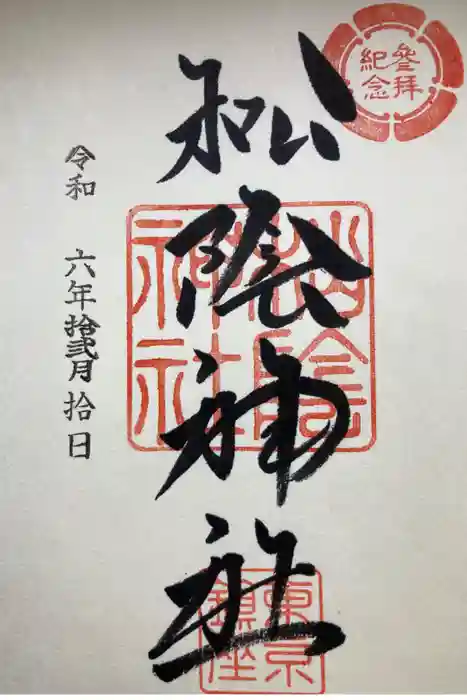 參拝
紀念
松陰神社
松陰
神社
東京
鎮座
令和 六年拾弐月拾日